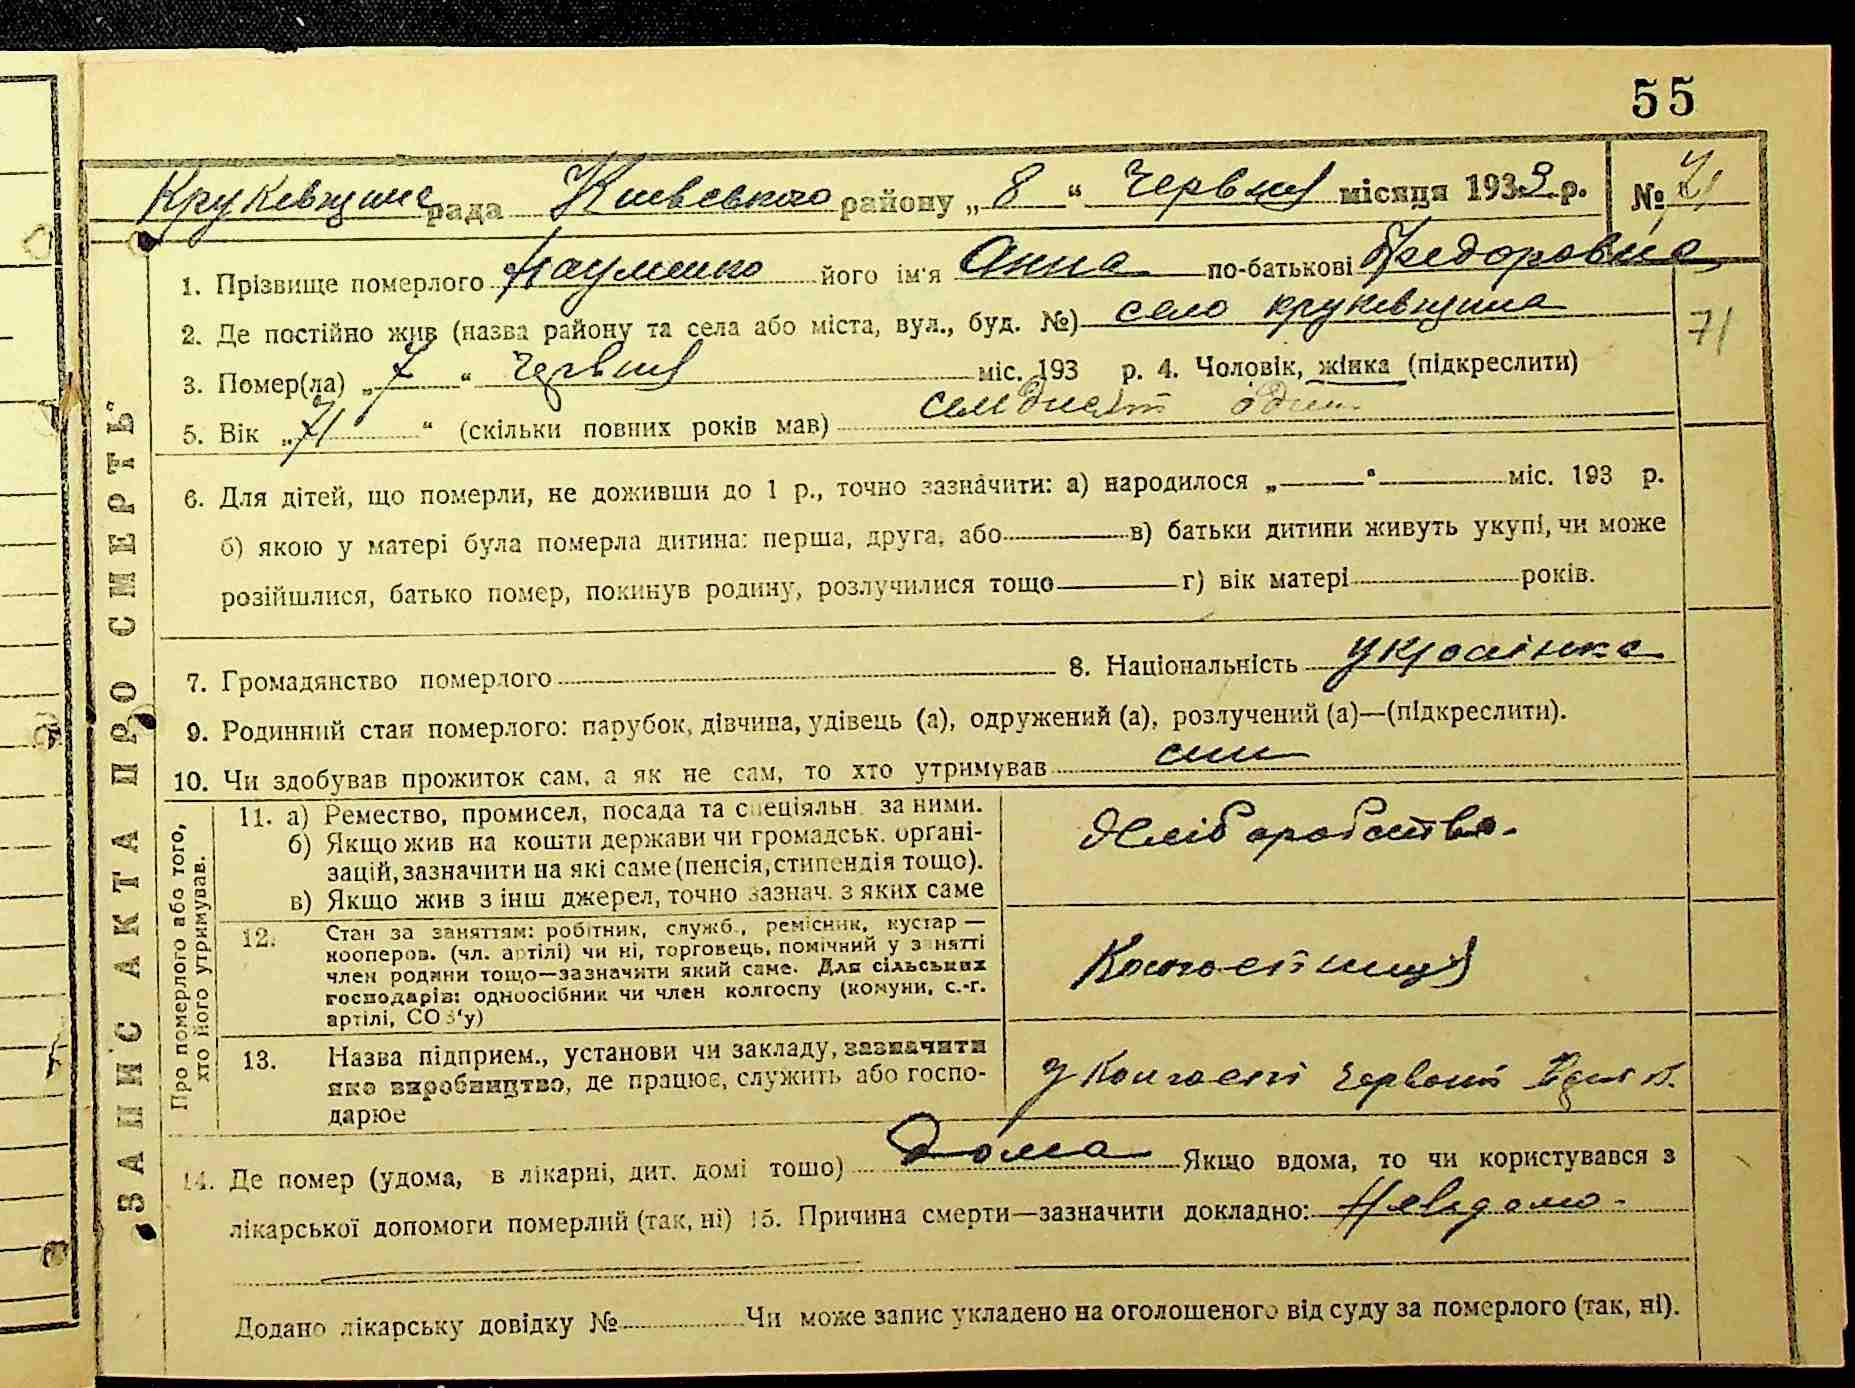 55
Круківщине рада Київського району „8“ Червня місяця 1932 р. № 71
1. Прізвище померлого Науменко його ім'я Анна по-батькові Федоровна
2. Де постійно жив (назва району та села або міста, вул., буд. №) село круківщина
71
3. Помер(ла) „7“ Червня міс. 193 р. 4. Чоловік, жінка (підкреслити)
5. Вік „71“ (скільки повних років мав) семдисят один
6. Для дітей, що померли, не доживши до 1 р., точно зазначити: а) народилося „—“— міс. 193 р.
б) якою у матері була померла дитина: перша, друга, або — в) батьки дитини живуть укупі, чи може
розійшлися, батько помер, покинув родину, розлучилися тощо — г) вік матері років.
7. Громадянство померлого 8. Національність українка
9. Родинний стан померлого: парубок, дівчина, удівець (а), одружений (а), розлучений (а)—(підкреслити).
10. Чи здобував прожиток сам, а як не сам, то хто утримував син
ЗАПИС АКТА ПРО СМЕРТЬ
Про померлого або того,
хто його утримував.
11. а) Ремество, промисел, посада та спеціяльн. за ними.
б) Якщо жив на кошти держави чи громадськ. органі-
зацій, зазначити на які саме (пенсія, стипендія тощо).
в) Якщо жив з інш джерел, точно зазнач. з яких саме
Хліборобство.
12. Стан за заняттям: робітник, служб., ремісник, кустар —
кооперов. (чл. артілі) чи ні, торговець, помічний у занятті
член родини тощо—зазначити який саме. Для сільських
господарів: одноосібник чи член колгоспу (комуни, с.-г.
артілі, СОЗ'у)
13. Назва підприєм., установи чи закладу, зазначити
яке виробництво, де працює, служить або госпо-
дарює
у Колгоспі Червоний
14. Де помер (удома, в лікарні, дит. домі тошо) Дома Якщо вдома, то чи користувався з
лікарської допомоги померлий (так, ні) 15. Причина смерти—зазначити докладно: Невідомо -
Додано лікарську довідку № Чи може запис укладено на оголошеного від суду за померлого (так, ні).